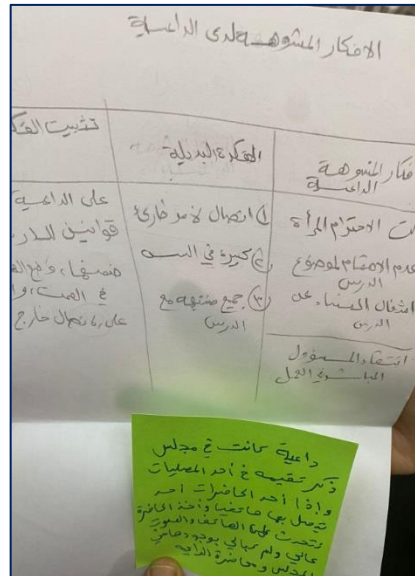 الافكار المشوهة لدى الداعية
فكار المشوهة
الداعية
الفكرة البديلة
تثبيت الفك
الاحترام المرأة
عدم الاهتمام لموضوع
الدرس
اشغال النساء عن
الدرس
انتقاد المسؤول
المباشر في العمل
١) اتصال لأمر طارئ
٢) كبيرة في السن
٣) جميع منتبهه مع
الدرس
على الداعية
قوانين الدار
في الصمت
على اتصال خارج
داعية كانت في مجلس
ذكر تقيمه في أحد المصليات
وإذا أحد الحاضرات أحد
يتصل بها هاتفيا وأخذة الحاضرة
تتحدث الهاتف والصوت
عالي ولم تبالي بوجودها في
المجلس ومحاضرة الداعية